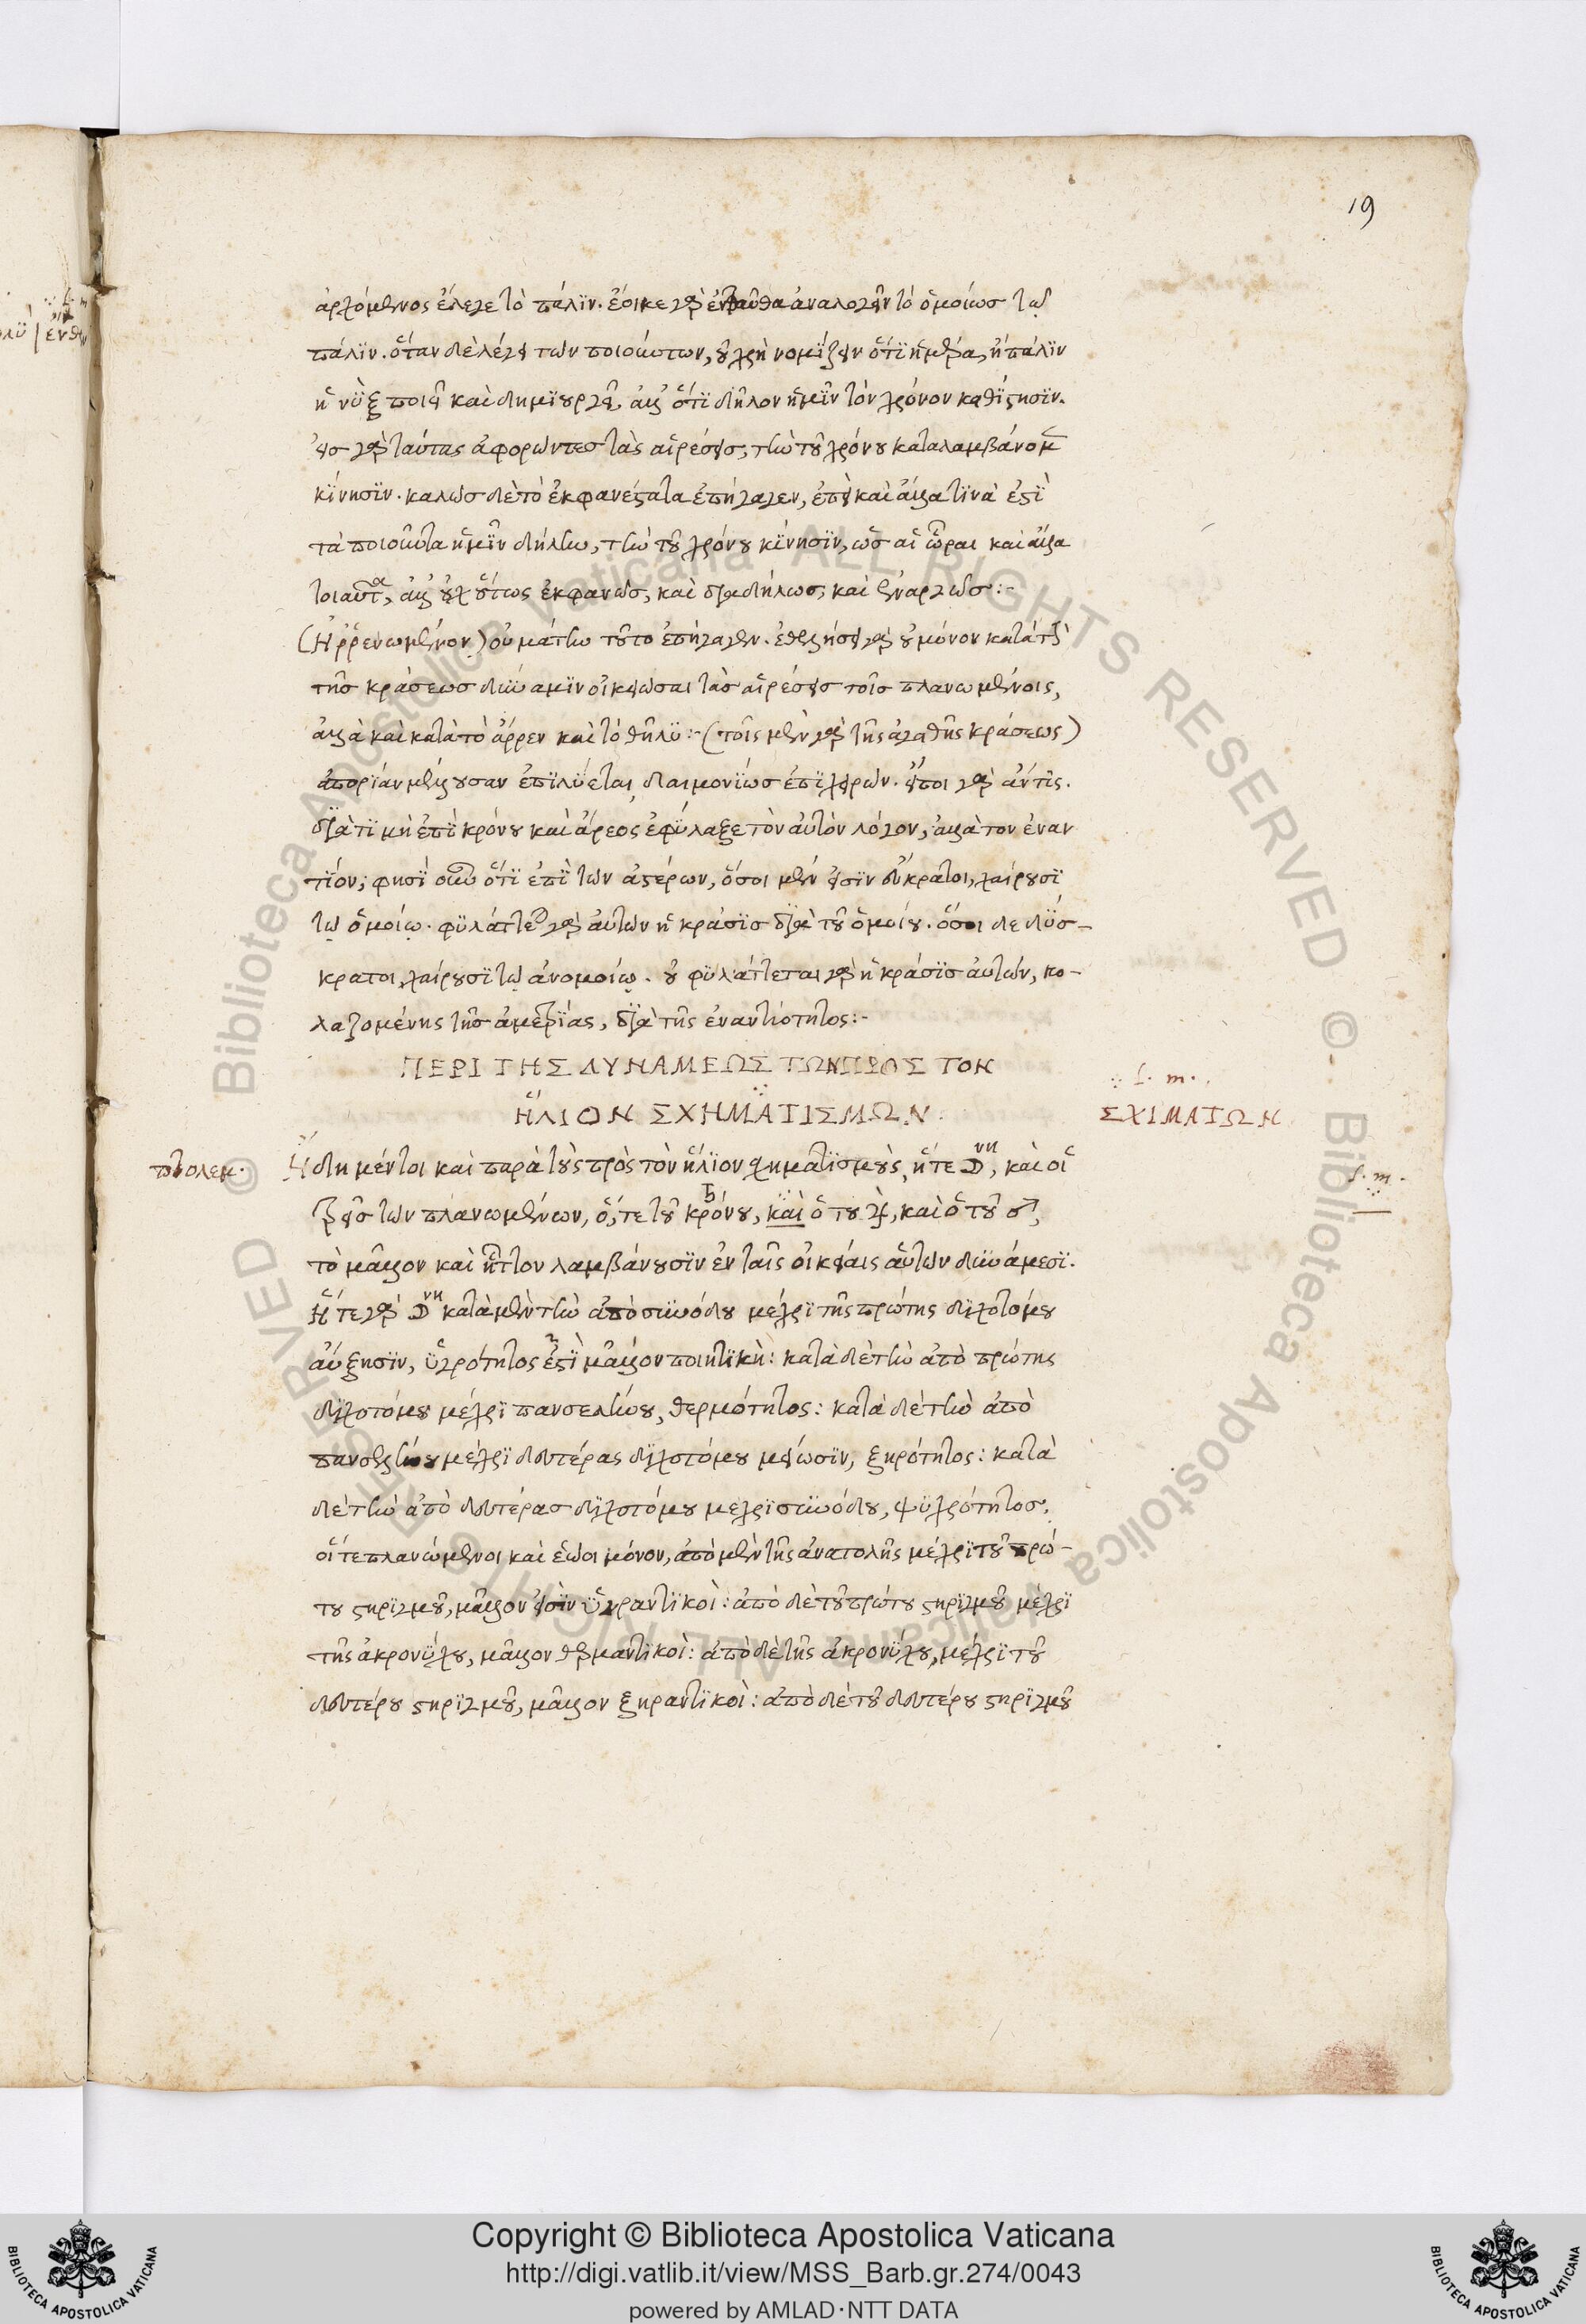 19
ἀρχόμενος ἔλεγε τὸ πάλϊν. ἔοικε γὰρ ἐνταῦθα ἀναλογεῖν τὸ ὁμοίως τῷ
πάλϊν. ὅταν δὲ λέγει τῶν ποιούντων, οὐ χρὴ νομίζειν ὅτϊ ἡμέρα, ἢ πάλϊν
ἡ νὺξ ποιεῖ καὶ δημϊουργεῖ, ἀλλ' ὅτϊ δῆλον ἡμῖν τὸν χρόνον καθίστησϊν.
εἰς γὰρ ταύτας ἀφορῶντες τὰς αἱρέσεις, τὴν τοῦ χρόνου καταλαμβάνομεν
κίνησϊν. καλῶς δὲ τὸ ἐκφανέστατα ἐπήγαγεν, ἐπεὶ καὶ ἄλλα τϊνὰ ἐστϊ
τὰ ποιοῦντα ἡμῖν δήλην, τὴν τοῦ χρόνου κίνησϊν, ὡς αἱ ὧραι καὶ ἄλλα
τοιαῦτα, ἀλλ' οὐχ οὕτως ἐκφανῶς, καὶ διαδήλως, καὶ ἐναργῶς:-
(Ἠρρενωμένον) οὐ μάτην τοῦτο ἐπήγαγεν. ἐθελήσει γὰρ οὐ μόνον κατὰ τὴν
τῆς κράσεως δύναμϊν οἰκειῶσαι τὰς αἱρέσεις τοῖς πλανωμένοις,
ἀλλὰ καὶ κατὰ τὸ ἄρρεν καὶ τὸ θῆλϋ:- (τοῖς μὲν γὰρ τῆς ἀγαθῆς κράσεως)
ἀπορϊαν μέλλουσαν ἐπϊλύεται, δαιμονίως ἐπϊχειρῶν. εἴποι γὰρ ἄν τις.
διατϊ μὴ ἐπϊ κρόνου καὶ ἄρεος ἐφύλαξε τὸν αὐτὸν λόγον, ἀλλὰ τον ἐναν
τίον; φησὶ οὖν ὅτϊ ἐπϊ τῶν ἀστέρων, ὅσοι μέν εἰσϊν εὔκρατοι, χαίρουσϊ
τῷ ὁμοίῳ. φϋλάττεται γὰρ αὐτῶν ἡ κρᾶσϊς διὰ τοῦ ὁμοίου. ὅσοι δε δύσ-
κρατοι, χαίρουσϊ τῷ ἀνομοίῳ. οὐ φϋλάττεται γὰρ ἡ κρᾶσϊς αὐτῶν, κο-
λαζομένης τῆς ἀμετρϊας, διὰ τῆς ἐναντιότητος:-
ΠΕΡΙ ΤΗΣ ΔΥΝΑΜΕΩΣ ΤΩΝ ΠΡΟΣ ΤΟΝ
ἭΛΙΟΝ ΣΧΗΜΑΤΙΣΜΩΝ.
∴ f. m.
ΣΧΙΜΑΤΩΝ
πτολεμ.
Ἤδη μέντοι καὶ παρὰ τοὺς πρὸς τὸν ἥλϊον σχηματϊσμοὺς, ἥτε ☽νη, καὶ οἱ
f. m.
τρεῖς τῶν πλανωμένων, ὅ, τε τοῦ κρόνου, ♄ καὶ ὁ του ♃, καὶ ὁ τοῦ ♂,
τὸ μᾶλλον καὶ ἧττον λαμβάνουσϊν ἐν ταῖς οἰκείαις αὑτῶν δυνάμεσϊ.
Ἥ τε γὰρ ☽νη κατὰ μὲν τὴν ἀπὸ συνόδου μέχρϊ τῆς πρώτης διχοτόμου
αὔξησϊν, ὑγρότητος ἐστὶ μᾶλλον ποιητϊκὴ: κατὰ δὲ τὴν ἀπὸ πρώτης
διχοτόμου μέχρϊ πανσελήνου, θερμότητος: κατὰ δὲ τὴν ἀπὸ
πανσελήνου μέχρϊ δευτέρας διχοτόμου μείωσϊν, ξηρότητος: κατὰ
δὲ τὴν ἀπὸ δευτέρας διχοτόμου μεχρϊ συνόδου, ψϋχρότητος.
οἵ τε πλανώμενοι καὶ ἑῶοι μόνον, ἀπὸ μὲν τῆς ἀνατολῆς μέχρϊ τοῦ πρώ-
του στηρϊγμοῦ, μᾶλλον εἰσὶν ὑγραντϊκοὶ: ἀπὸ δὲ τοῦ πρώτου στηρϊγμοῦ μέχρϊ
τῆς ἀκρονύχου, μᾶλλον θερμαντϊκοὶ: ἀπὸ δὲ τῆς ἀκρονύχου, μέχρϊ τοῦ
δευτέρου στηρϊγμοῦ, μᾶλλον ξηραντϊκοὶ: ἀπὸ δὲ τοῦ δευτέρου στηρϊγμοῦ
Copyright © Biblioteca Apostolica Vaticana
http://digi.vatlib.it/view/MSS_Barb.gr.274/0043
powered by AMLAD·NTT DATA